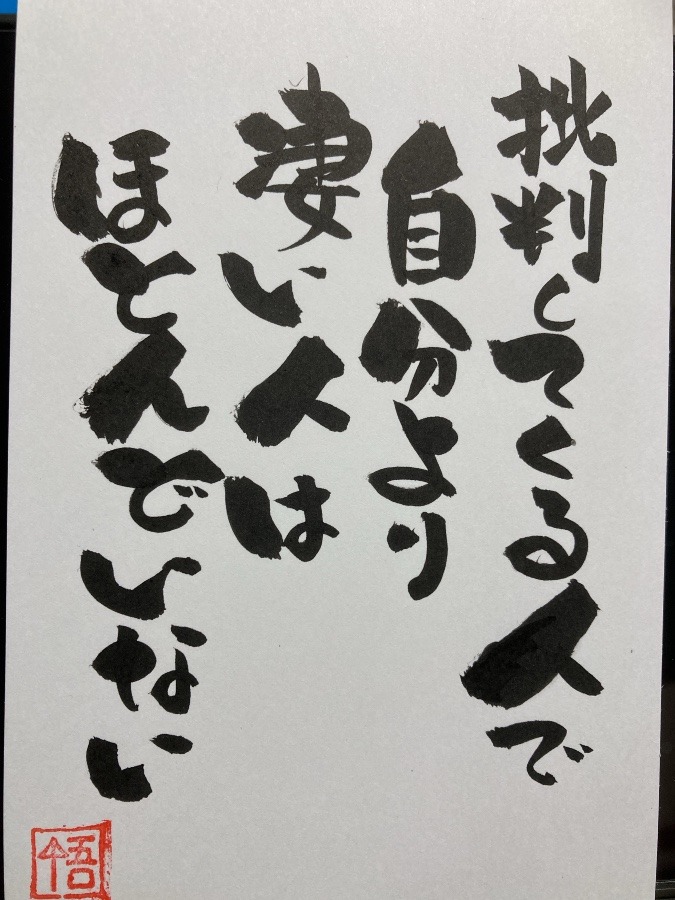 批判してくる人で
自分より
凄い人は
ほとんどいない
悟